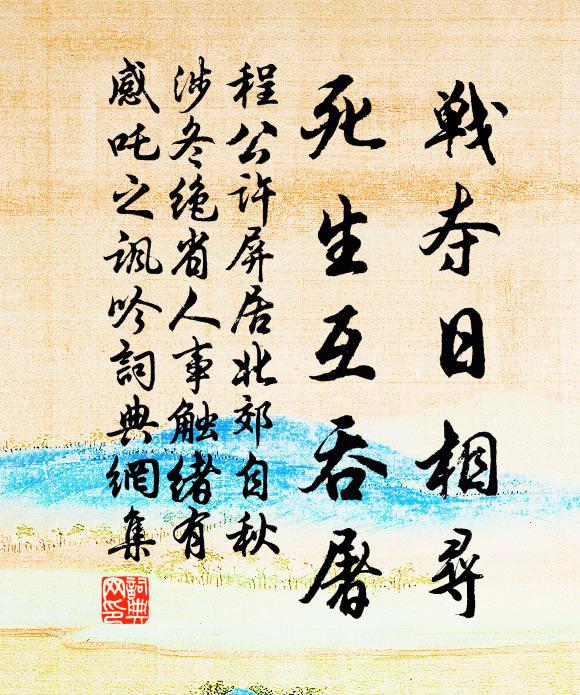 戦夺日相尋
死生互吞屠
程公许屏居北郊自秋
涉冬绝省人事触绪有
感吒之讽吟詞典網集
詞典